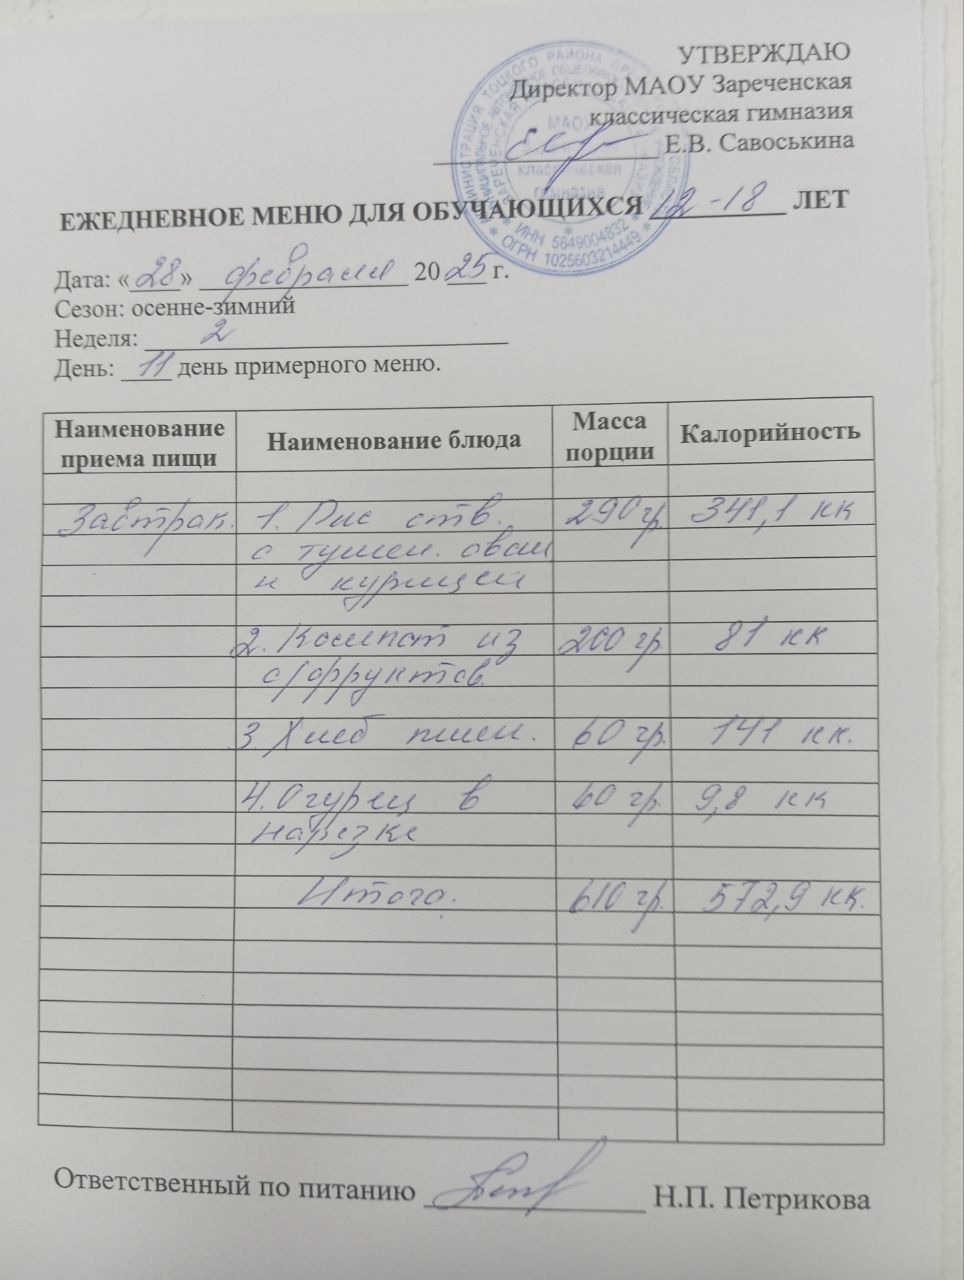 УТВЕРЖДАЮ
Директор МАОУ Зареченская
классическая гимназия
Е.В. Савоськина
ИНН 5649004832
ОГРН 1025603214449
ЕЖЕДНЕВНОЕ МЕНЮ ДЛЯ ОБУЧАЮЩИХСЯ 12-18 ЛЕТ
Дата: «28» февраля 2025 г.
Сезон: осенне-зимний
Неделя: 2
День: 11 день примерного меню.
Наименование приема пищи Наименование блюда Масса порции Калорийность
Завтрак. 1. Рис отв. 290 гр. 341,1 кк
с тушен. овощ
и курицей
2. Компот из 200 гр. 81 кк
с/фруктов.
3. Хлеб пшен. 60 гр. 141 кк.
4. Огурец в 60 гр. 9,8 кк
нарезке
Итого. 610 гр. 572,9 кк.
Ответственный по питанию Н.П. Петрикова